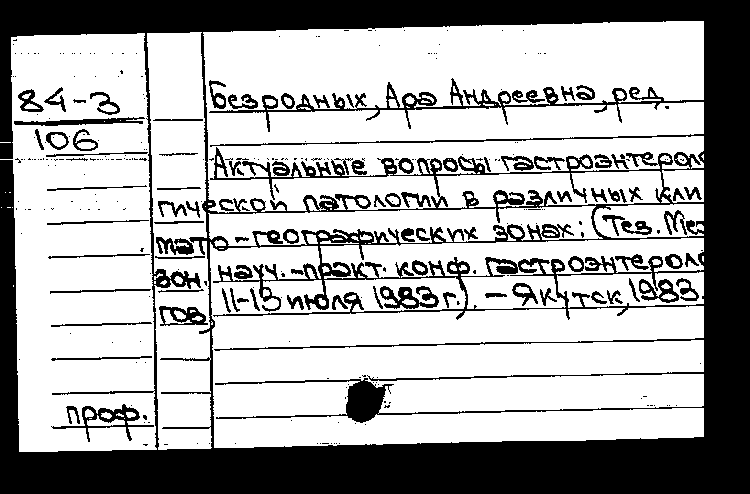 84-3
106
Безродных, Ара Андреевна, ред.
Актуальные вопросы гастроэнтероло
гической патологии в различных кли
мато-географических зонах: (Тез. Меж
зон. науч.-практ. конф. гастроэнтероло
гов, 11-13 июля 1983 г.). - Якутск, 1983.
проф.